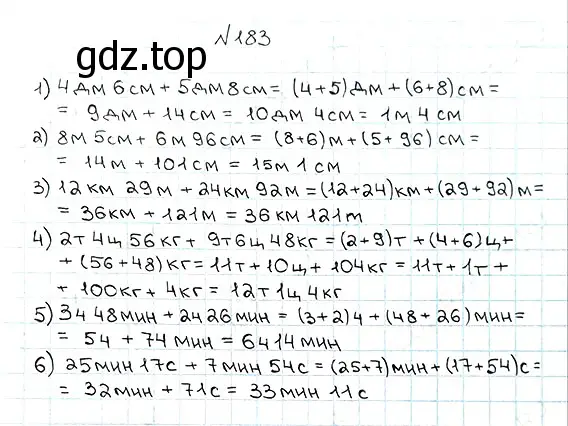 №183
gdz.top
1) 4дм 6см + 5дм 8см = (4+5)дм + (6+8)см =
= 9дм + 14см = 10дм 4см = 1м 4см
2) 8м 5см + 6м 96см = (8+6)м + (5+96)см =
= 14м + 101см = 15м 1см
3) 12км 29м + 24км 92м = (12+24)км + (29+92)м =
= 36км + 121м = 36км 121м
4) 2т 4ц 56кг + 9т 6ц 48кг = (2+9)т + (4+6)ц +
+ (56+48)кг = 11т + 10ц + 104кг = 11т + 1т +
+ 100кг + 4кг = 12т 1ц 4кг
5) 3ч 48мин + 2ч 26мин = (3+2)ч + (48+26)мин =
= 5ч + 74мин = 6ч 14мин
6) 25мин 17с + 7мин 54с = (25+7)мин + (17+54)с =
= 32мин + 71с = 33мин 11с